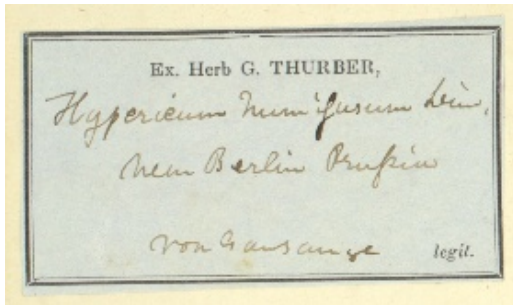 Ex. Herb G. THURBER,
Hypericum humifusum Lin.
near Berlin Prußia
von Gansauge legit.